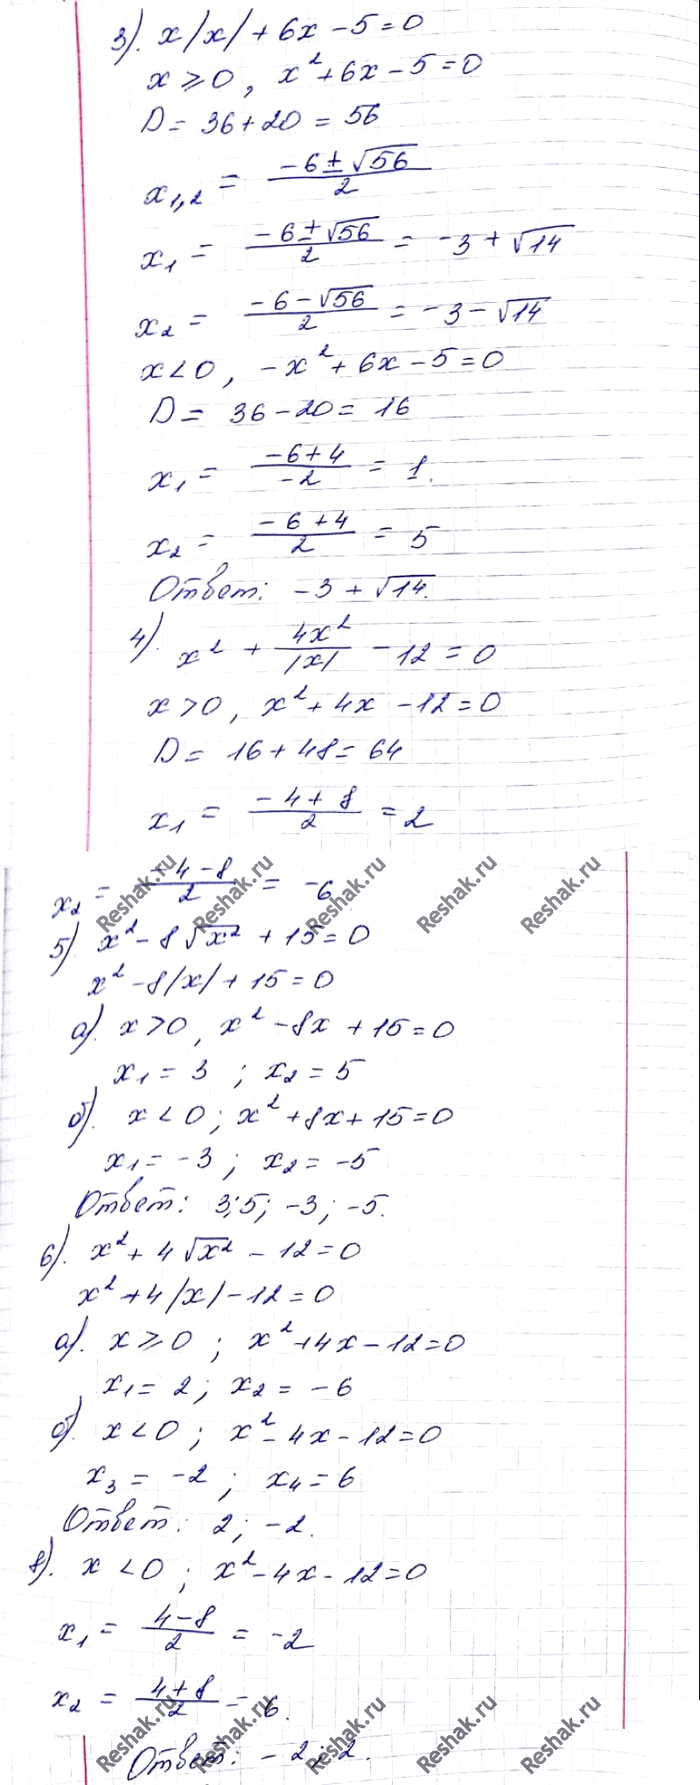 3). x|x| + 6x - 5 = 0
x ≥ 0, x² + 6x - 5 = 0
D = 36 + 20 = 56
x₁,₂ = (-6 ± √56)/2
x₁ = (-6 ± √56)/2 = -3 + √14
x₂ = (-6 - √56)/2 = -3 - √14
x < 0, -x² + 6x - 5 = 0
D = 36 - 20 = 16
x₁ = (-6 + 4)/-2 = 1.
x₂ = (-6 + 4)/2 = 5
Ответ: -3 + √14.
4). x² + 4x²/|x| - 12 = 0
x > 0, x² + 4x - 12 = 0
D = 16 + 48 = 64
x₁ = (-4 + 8)/2 = 2
x₂ = (-4 - 8)/2 = -6
Reshak.ru Reshak.ru Reshak.ru Reshak.ru Reshak.ru
5) x² - 8√x² + 15 = 0
x² - 8|x| + 15 = 0
а). x > 0, x² - 8x + 15 = 0
x₁ = 3 ; x₂ = 5
б). x < 0 ; x² + 8x + 15 = 0
x₁ = -3 ; x₂ = -5
Ответ: 3; 5; -3; -5.
6). x² + 4√x² - 12 = 0
x² + 4|x| - 12 = 0
а). x ≥ 0 ; x² + 4x - 12 = 0
x₁ = 2 ; x₂ = -6
б) x < 0 ; x² - 4x - 12 = 0
x₃ = -2 ; x₄ = 6
Ответ: 2; -2.
8). x < 0 ; x² - 4x - 12 = 0
x₁ = (4 - 8)/2 = -2
x₂ = (4 + 8)/2 = 6.
Ответ: -2; 2.
Reshak.ru Reshak.ru Reshak.ru Reshak.ru Reshak.ru